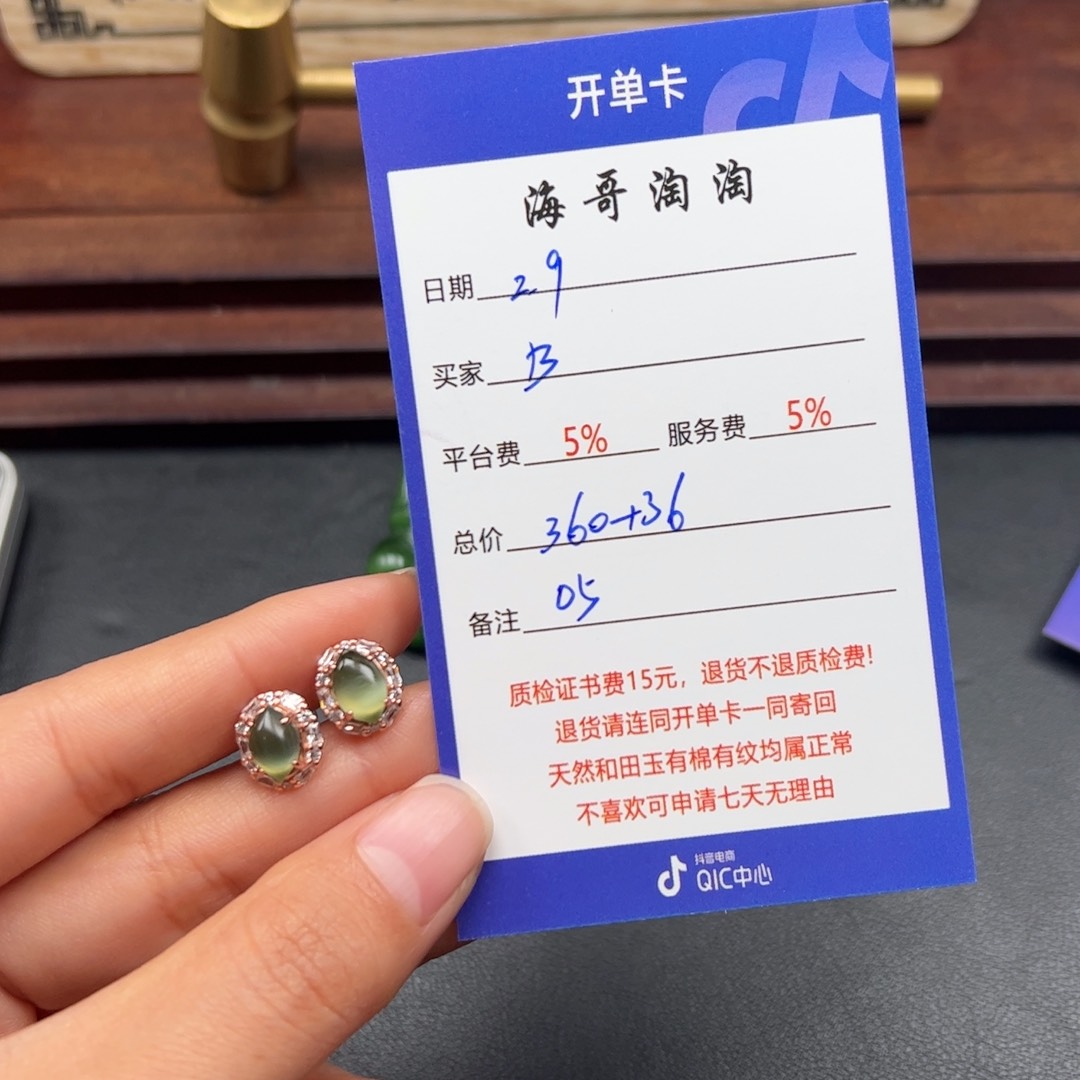 开单卡
海哥淘淘
日期 2.9
买家
平台费 5% 服务费 5%
总价 360+36
备注 05
质检证书费15元，退货不退质检费!
退货请连同开单卡一同寄回
天然和田玉有棉有纹均属正常
不喜欢可申请七天无理由
抖音电商
QIC中心